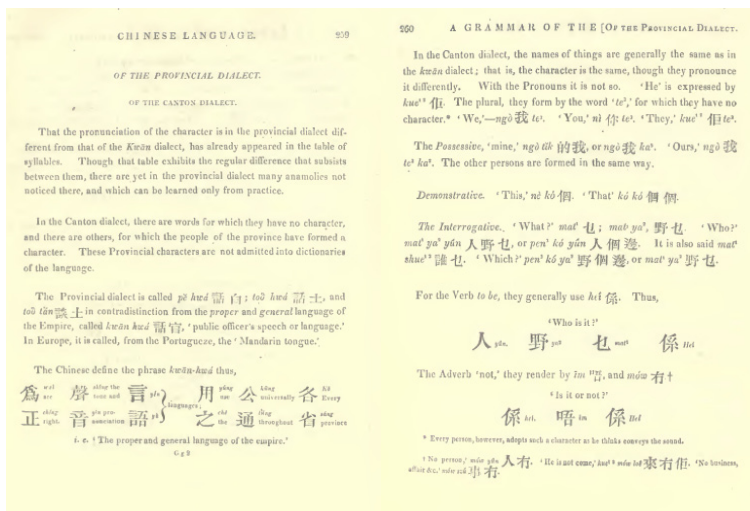 CHINESE LANGUAGE. 259
OF THE PROVINCIAL DIALECT.
OF THE CANTON DIALECT.
That the pronunciation of the character is in the provincial dialect dif-
ferent from that of the Kwān dialect, has already appeared in the table of
syllables. Though that table exhibits the regular difference that subsists
between them, there are yet in the provincial dialect many anamolies not
noticed there, and which can be learned only from practice.
In the Canton dialect, there are words for which they have no character,
and there are others, for which the people of the province have formed a
character. These Provincial characters are not admitted into dictionaries
of the language.
The Provincial dialect is called pĕ hwá 話白; toŭ hwá 話土, and
toŭ tăn 談土 in contradistinction from the proper and general language of
the Empire, called kwān hwá 話官, 'public officer's speech or language.'
In Europe, it is called, from the Portugueze, the 'Mandarin tongue.'
The Chinese define the phrase kwān-hwá thus,
爲 are 聲 tone and 言 yĕn 用 use 公 universally 各 Every
languages;
正 right. 音 語 之 the 通 throughout 省 province
i. e. 'The proper and general language of the empire.'
G g 2
260 A GRAMMAR OF THE [OF THE PROVINCIAL DIALECT.
In the Canton dialect, the names of things are generally the same as in
the kwān dialect; that is, the character is the same, though they pronounce
it differently. With the Pronouns it is not so. 'He' is expressed by
佢. The plural, they form by the word for which they have no
character.* 'We,'—ngò 我 'You,' nì 你 'They,' 佢
The Possessive, 'mine,' ngò tĭk 的我, or ngò 我 'Ours,' ngò 我
The other persons are formed in the same way.
Demonstrative. 'This,' nè kó 個. 'That' kó kó 個 個.
The Interrogative. 'What?' 乜; 野乜. 'Who?'
人野乜, or 人個邊. It is also said
誰乜. 'Which?' 野個邊, or 野乜.
For the Verb to be, they generally use heĭ 係. Thus,
'Who is it?'
人 yún. 野 乜 係 Heĭ
The Adverb 'not,' they render by ĭm 唔, and mów 冇†
'Is it or not?'
係 heĭ. 唔 ĭm 係 Heĭ
* Every person, however, adopts such a character as he thinks conveys the sound.
† 'No person,' mów yún 人冇. 'He is not come,' 來冇佢. 'No business,
事冇.